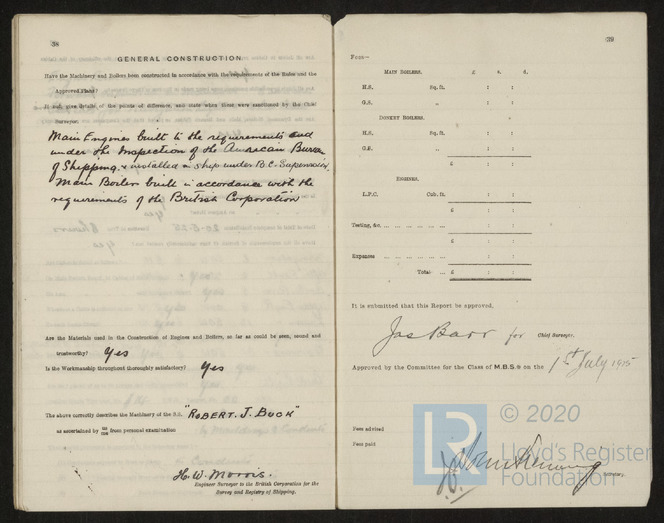 38
GENERAL CONSTRUCTION
Have the Machinery and Boilers been constructed in accordance with the requirements of the Rules and the
Approved Plans?
If not, give details of the points of difference, and state when these were sanctioned by the Chief
Surveyor.
Main Engines built to the requirements and
under the Inspection of the American Bureau
of Shipping, & installed in ship under B.C. Supervision.
Main Boilers built in accordance with the
requirements of the British Corporation
Are the Materials used in the Construction of Engines and Boilers, so far as could be seen, sound and
trustworthy? Yes
Is the Workmanship throughout thoroughly satisfactory? Yes
The above correctly describes the Machinery of the S.S. "ROBERT. J. BUCK"
as ascertained by us from personal examination
H. W. Morris.
Engineer Surveyor to the British Corporation for the
Survey and Registry of Shipping.
39
FEES—
MAIN BOILERS. £ s. d.
H.S. Sq. ft. : :
G.S. „ : :
DONKEY BOILERS.
H.S. Sq. ft. : :
G.S. „ : :
£ : :
ENGINES.
L.P.C. Cub. ft. : :
£ : :
Testing, &c. : :
£ : :
Expenses : :
Total £ : :
It is submitted that this Report be approved,
Jas Barr for Chief Surveyor.
Approved by the Committee for the Class of M.B.S.* on the 1st July 1925
Fees advised
Fees paid
Secretary.
© 2020
LR
Lloyd's Register
Foundation